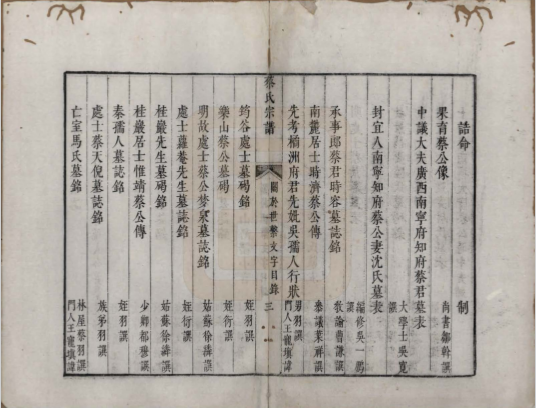 誥命 制
果齋蔡公像 尚書鄒幹譔
中議大夫廣西南寧府知府蔡君墓表 大學士吳寬譔
封宜人南寧知府蔡公妻沈氏墓表 編修吳一鵬譔
承事郎蔡君時容墓誌銘 教諭曹謙譔
南麓居士時濟蔡公傳 參議葉祥譔
先考橘洲府君先妣吳孺人行狀 男羽譔 門人王寵填諱
蔡氏宗譜
關於世繫文字目錄 三
筠谷處士墓碣銘 姪羽譔
樂山蔡公墓碣 姪衍譔
明故處士蔡公夢泉墓誌銘 姑蘇徐濤譔
處士蘿菴先生墓誌銘 姪衍譔
桂巖先生墓碣銘 姑蘇徐濤譔
桂巖居士惟靖蔡公傳 少卿都穆譔
秦孺人墓誌銘 姪羽譔
處士蔡天倪墓誌銘 族弟羽譔
亡室馬氏墓銘 林屋蔡羽譔 門人王寵填諱